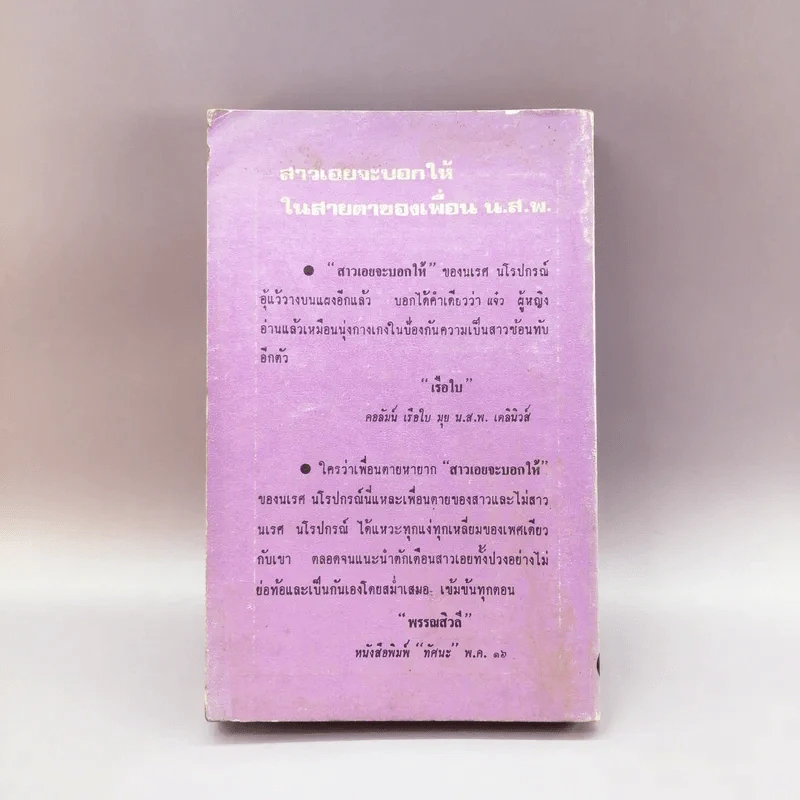 สาวเอยจะบอกให้
ในสายตาของเพื่อน น.ส.พ.
● “สาวเอยจะบอกให้” ของนเรศ นโรปกรณ์
อุ้แว้วางบนแผงอีกแล้ว บอกได้คำเดียวว่า แจ๋ว ผู้หญิง
อ่านแล้วเหมือนนุ่งกางเกงในป้องกันความเป็นสาวซ้อนทับ
อีกตัว
“เรือใบ”
คอลัมน์ เรือใบ มุย น.ส.พ. เดลินิวส์
● ใครว่าเพื่อนตายหายาก “สาวเอยจะบอกให้”
ของนเรศ นโรปกรณ์นี่แหละเพื่อนตายของสาวและไม่สาว
นเรศ นโรปกรณ์ ได้แหวะทุกแง่ทุกเหลี่ยมของเพศเดียว
กับเขา ตลอดจนแนะนำตักเตือนสาวเอยทั้งปวงอย่างไม่
ย่อท้อและเป็นกันเองโดยสม่ำเสมอ เข้มข้นทุกตอน
“พรรณสิวลี”
หนังสือพิมพ์ “ทัศนะ” พ.ค. ๑๖